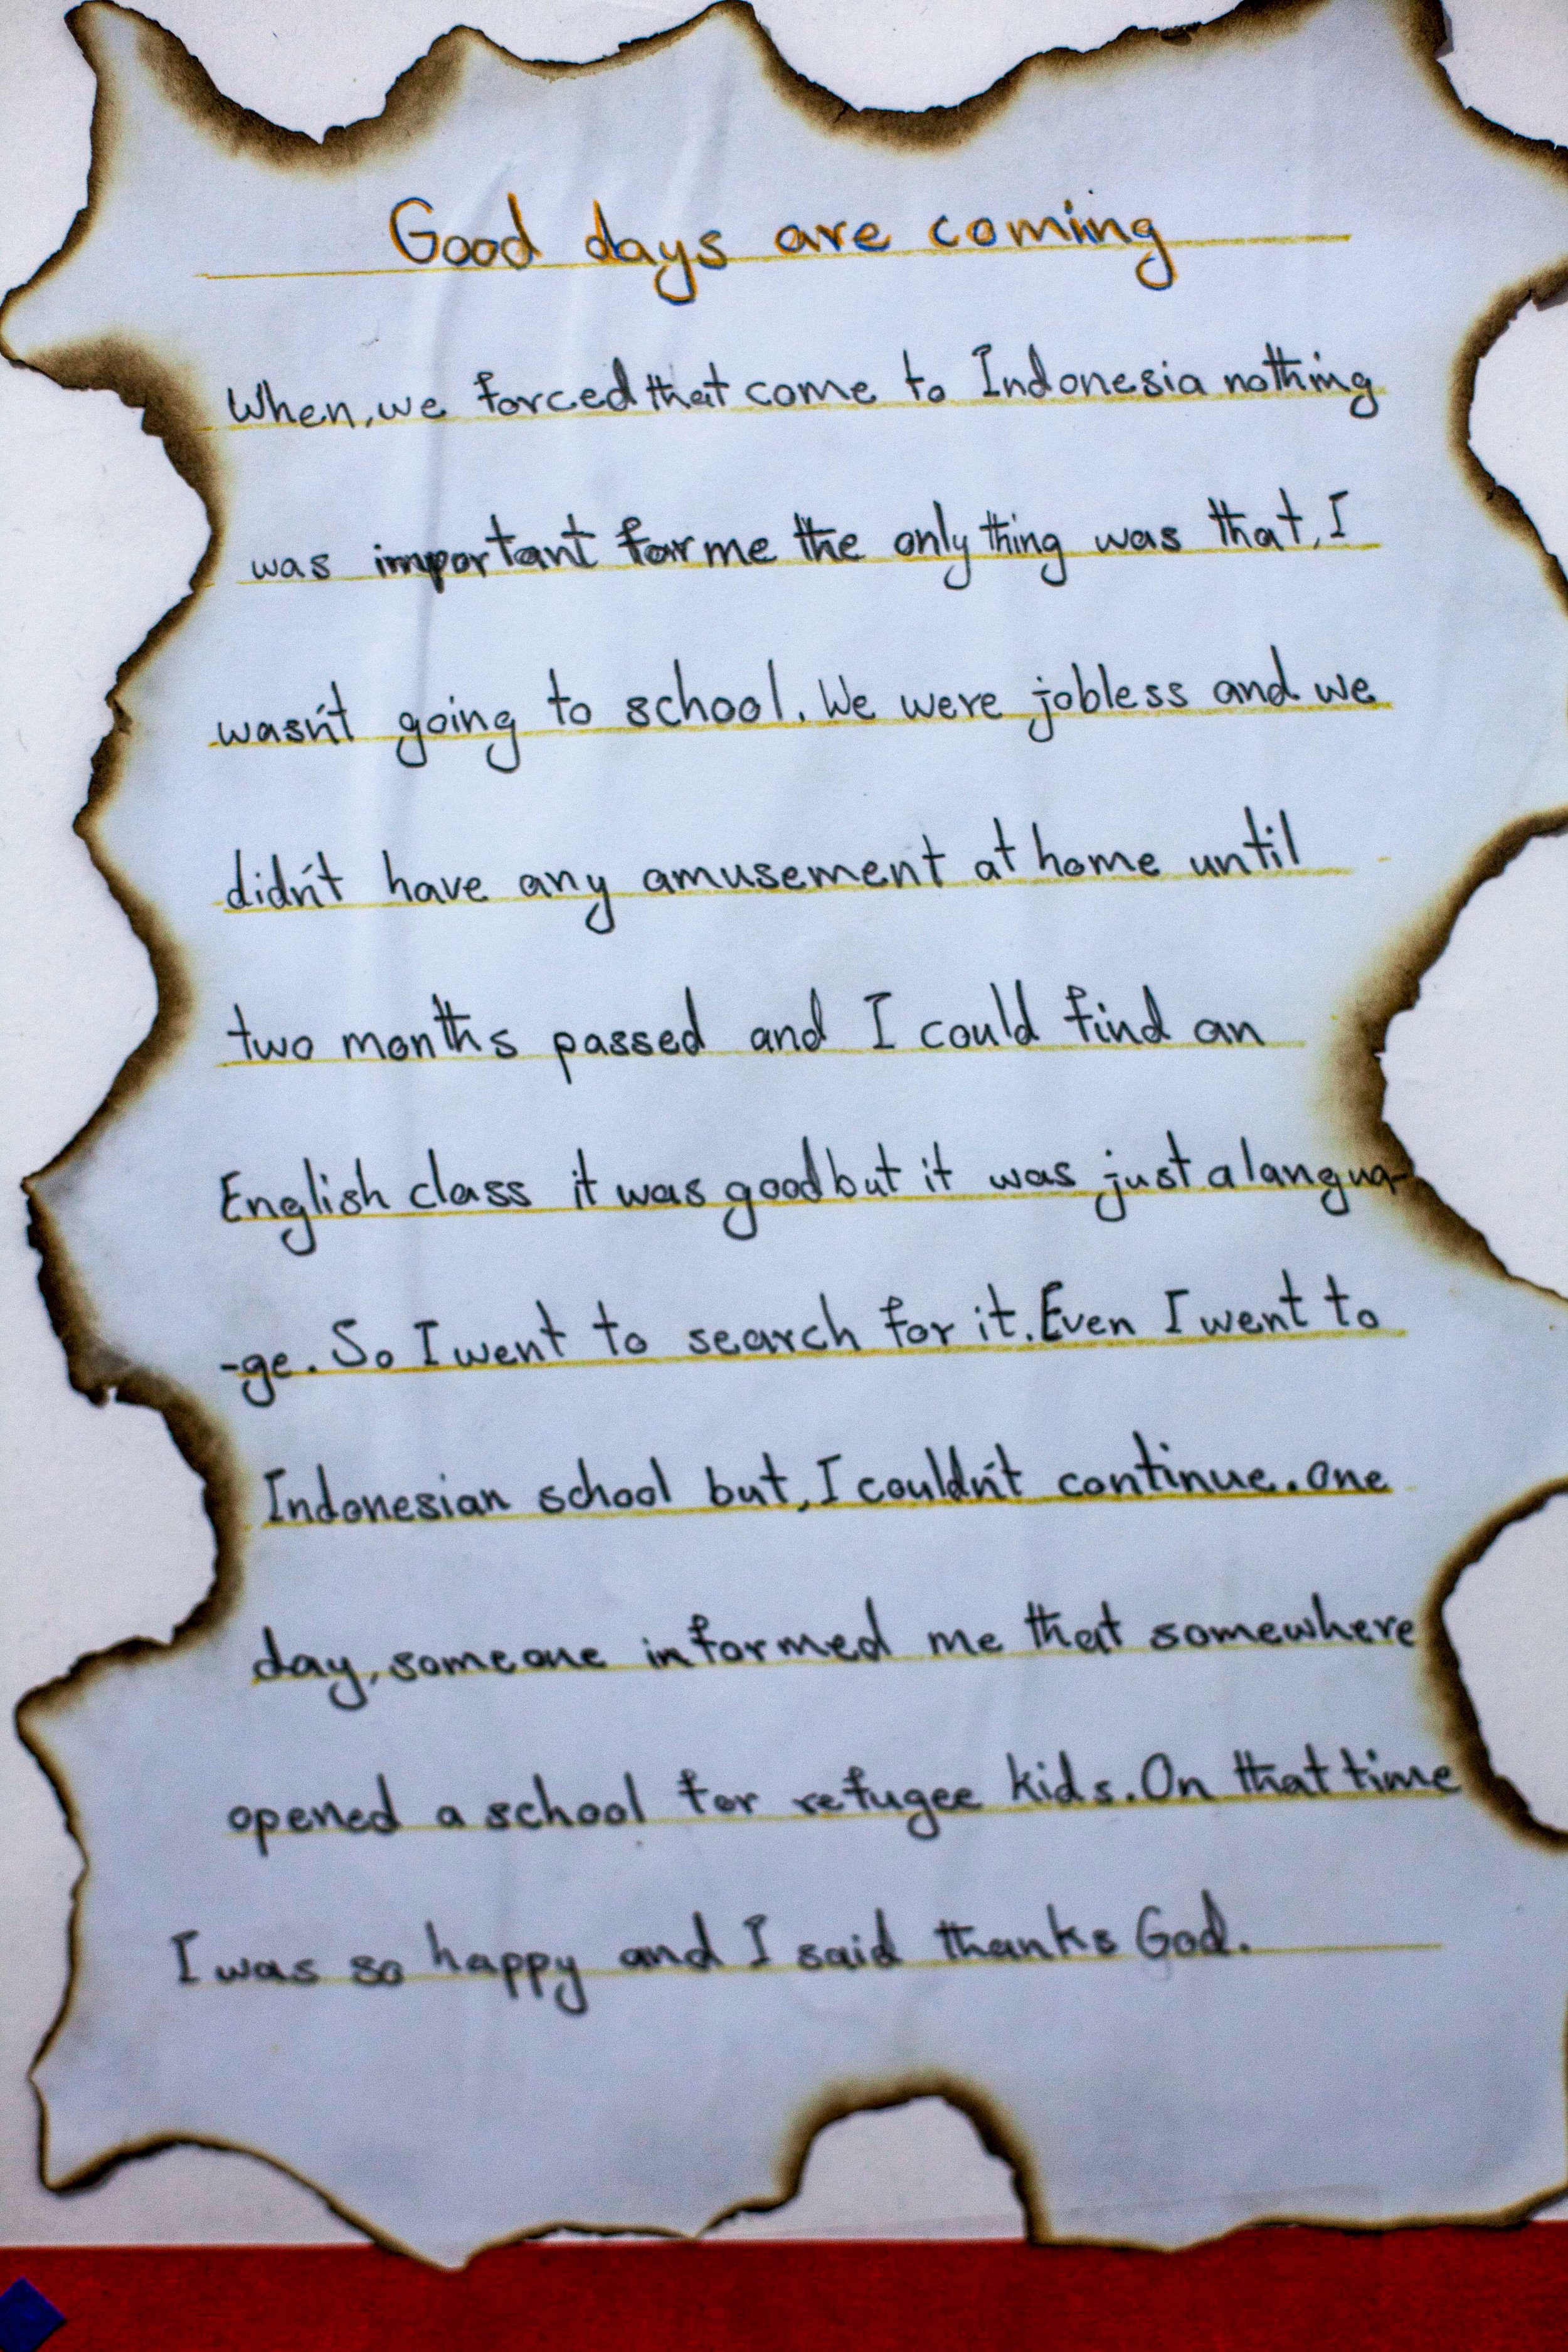 Good days are coming
When, we forced that come to Indonesia nothing
was important for me the only thing was that, I
wasn't going to school. We were jobless and we
didn't have any amusement at home until
two months passed and I could find an
English class it was good but it was just a langua-
-ge. So I went to search for it. Even I went to
Indonesian school but, I couldn't continue. One
day, someone informed me that somewhere
opened a school for refugee kids. On that time
I was so happy and I said thanks God.